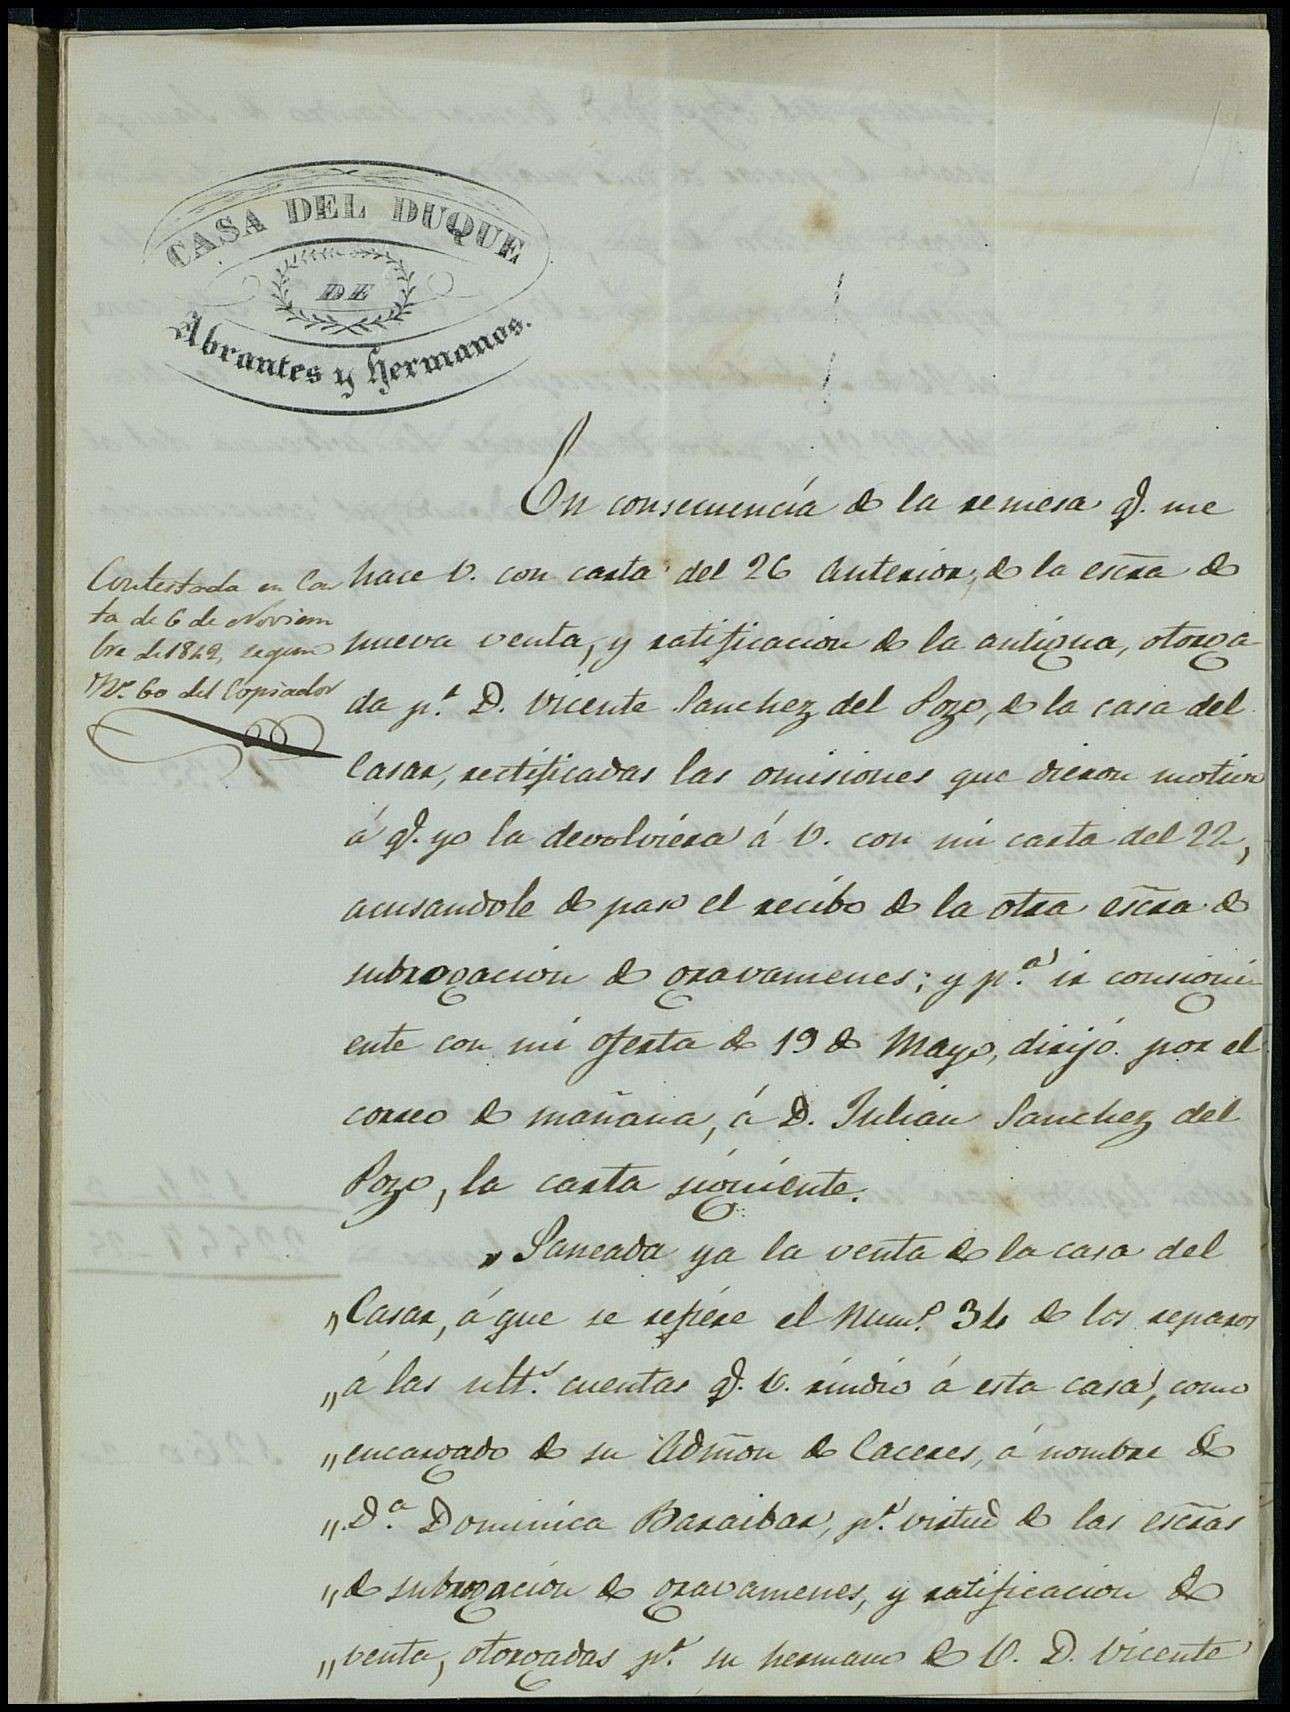 CASA DEL DUQUE
DE
Abrantes y hermanos.
En consecuencia de la remesa q.e me
hace V. con carta del 26 anterior, de la escra de
nueva venta, y ratificacion de la antigua, otorga
da p.r D. Vicente Sanchez del Pozo, de la casa del
Casar, rectificadas las omisiones que dieron motivo
á q.e yo la devolviéra á V. con mi carta del 22,
acusandole de paso el recibo de la otra escra de
subrogacion de gravamenes; y p.a ir consigui
ente con mi oferta de 19 de Mayo, dirijó por el
correo de mañana, á D. Julian Sanchez del
Pozo, la carta siguiente.
Contestada en Car
ta de 6 de Noviem
bre de 1842, segun
N.o 60 del Copiador
„ Saneada ya la venta de la casa del
„ Casar, á que se refiére el Num.o 34 de los reparos
„ á las ult.s cuentas q.e V. rindió á esta casa, como
„ encargado de su Admon de Caceres, á nombre de
„ D.a Dominica Baraibar, p.r virtud de las escras
„ de subrogación de gravamenes, y ratificacion de
„ venta, otorgadas p.r su hermano de V. D. Vicente